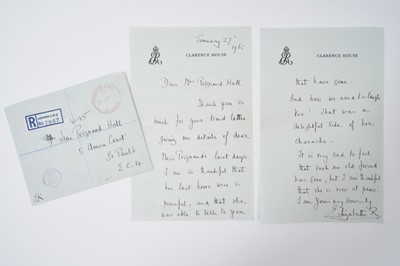 January 27th
1965
CLARENCE HOUSE
Dear Mrs Poignand Hall
Thank you so
much for your kind letter
giving me details of dear
Miss Poignands last days.
I am so thankful that
her last hours were so
peaceful, and that she
was able to talk to you
CLARENCE HOUSE
that have gone.
And how we used to laugh
too! That was a
delightful side of her
character.
It is very sad to feel
that such an old friend
has gone, but I am thankful
that she is now at peace.
I am, Yours very sincerely
Elizabeth R
R
No
Mrs Poignand Hall
5 Amen Court
St Pauls
E.C.4.
ER